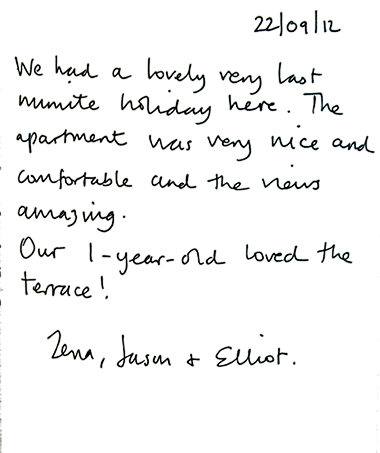 22/09/12
We had a lovely very last
minute holiday here. The
apartment was very nice and
comfortable and the views
amazing.
Our 1-year-old loved the
terrace!
Zena, Jason + Elliot.